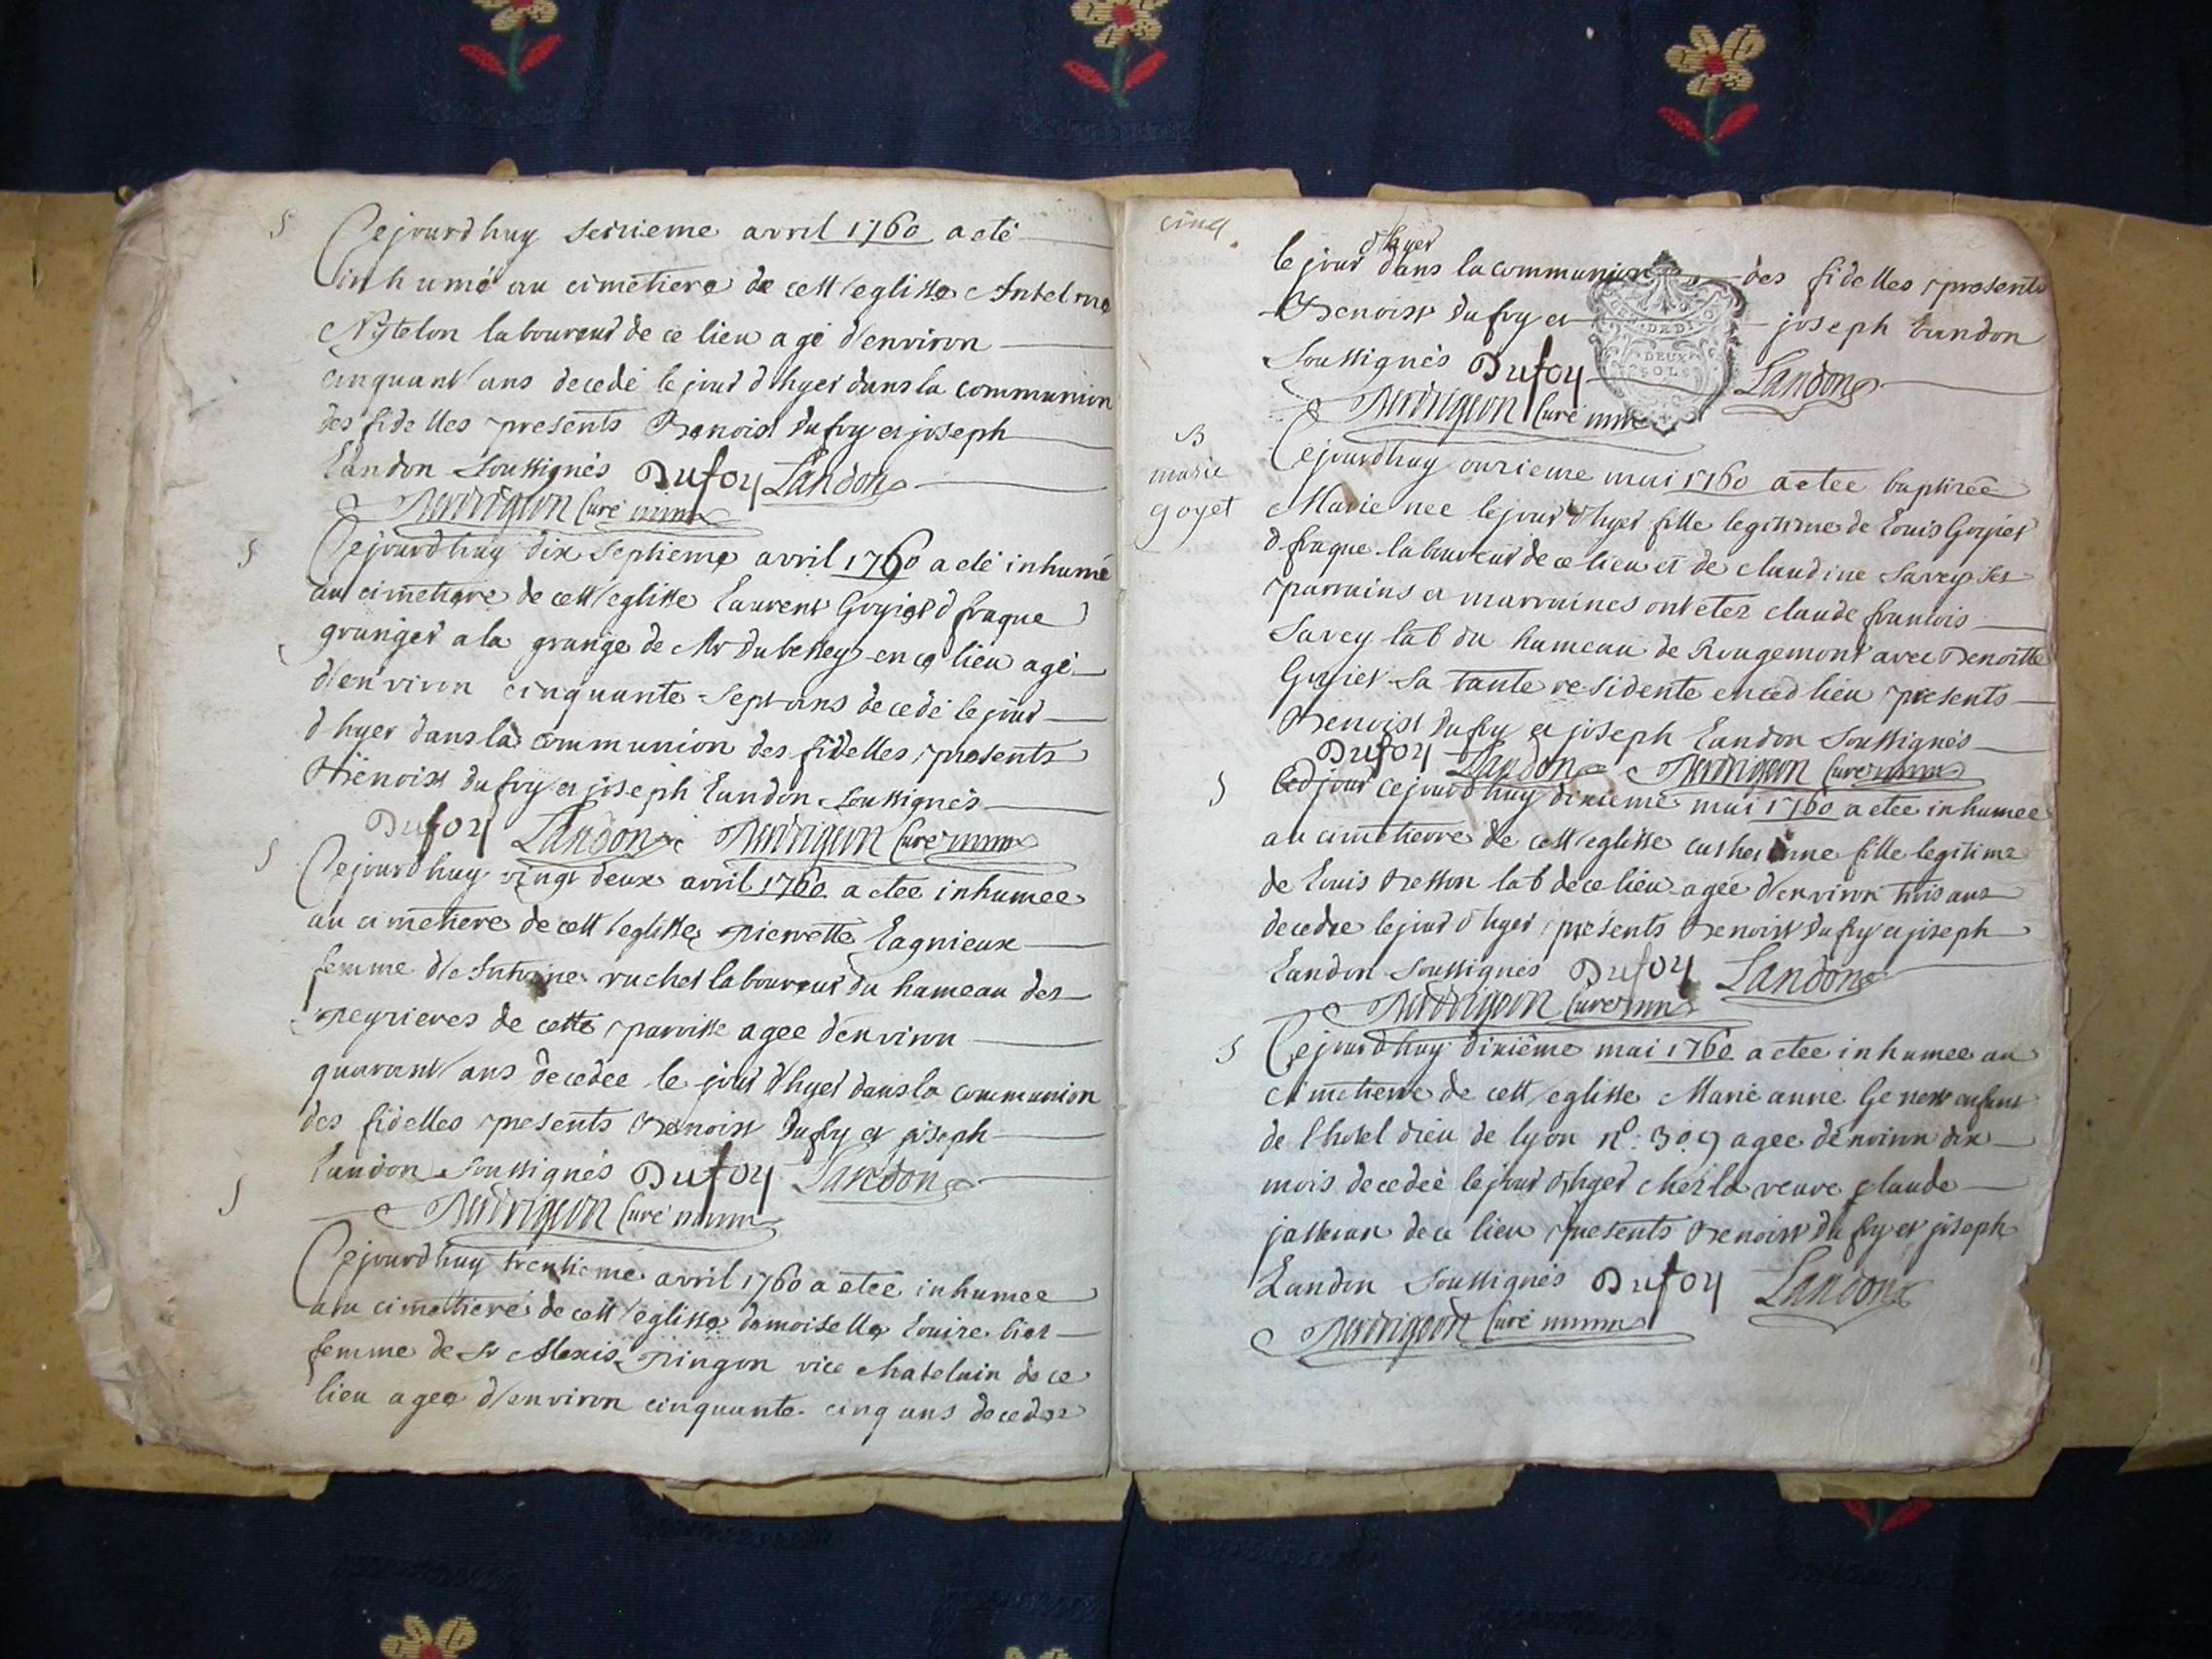 S
Cejourdhuy seizieme avril 1760 a eté
inhumé au cimetiere de cett eglisse Antelme
laboureur de ce lieu agé d'environ
cinquant ans decedé le jour d'hyer dans la communion
des fidelles presents Benoist Dufoy et joseph
Landon Soussignés Dufoy Landon
Curé
S
Cejourdhuy dix septieme avril 1760 a eté inhumé
au cimetiere de cett eglisse Laurent Goyiet d fraque
granger a la grange de Mr Dubessey en ce lieu agé
d'environ cinquante sept ans decedé le jour
d'hyer dans la communion des fidelles presents
Benoist Dufoy et joseph Landon Soussignés
Dufoy Landon Curé
S
Cejourdhuy vingt deux avril 1760 a etee inhumee
au cimetiere de cett eglisse pierrette Lagnieux
femme d'Antoine ruchet laboureur du hameau des
peyrieres de cette paroisse agee denviron
quarant ans decedee le jour d'hyer dans la communion
des fidelles presents Benoist Dufoy et joseph
Landon Soussignés Dufoy Landon
Curé
S
Cejourdhuy trentieme avril 1760 a etee inhumee
au cimetiere de cett eglisse damoiselle Louise
femme de Sr Alexis Pingon vice chatelain de ce
lieu agee d'environ cinquante cinq ans decedee
cinq
d'hyer
le jour dans la communion des fidelles presents
Benoist Dufoy et joseph Landon
DEUX
SOLS
Soussignés Dufoy Landon
Curé
B
marie
goyet
Cejourdhuy onzieme mai 1760 a etee baptizée
Marie nee le jour d'hyer fille legitime de Louis Goyiet
d fraque laboureur de ce lieu et de claudine Savey ses
parrains et marraines ont etez claude francois
Savey lab du hameau de Rougemont avec Benoitte
Goyiet sa tante residente en ced lieu presents
Benoist Dufoy et joseph Landon Soussignés
Dufoy Landon Curé
S
Ced jour cejourdhuy dixieme mai 1760 a etee inhumee
au cimetierre de cett eglisse catherinne fille legitime
de Louis Besson lab de ce lieu agée d'environ trois ans
decedee le jour d'hyer presents Benoist Dufoy et joseph
Landon Soussignés Dufoy Landon
Curé
S
Cejourdhuy dixième mai 1760 a etee inhumee au
cimetierre de cett eglisse Marie anne Genest enfant
de l'hotel dieu de lyon n°: 309 agee denviron dix
mois decedeé le jour d'hyer chez la veuve claude
de ce lieu presents Benoist Dufoy et joseph
Landon Soussignés Dufoy Landon
Curé